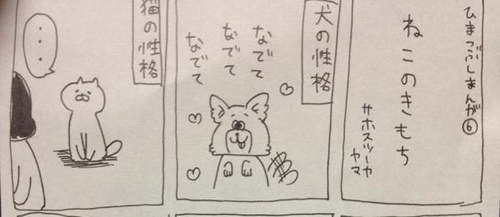 ひまつぶしまんが⑥
ねこのきもち
サホスツーヤ
ヤマ
犬の性格
なでて
なでて
なでて
猫の性格
・・・